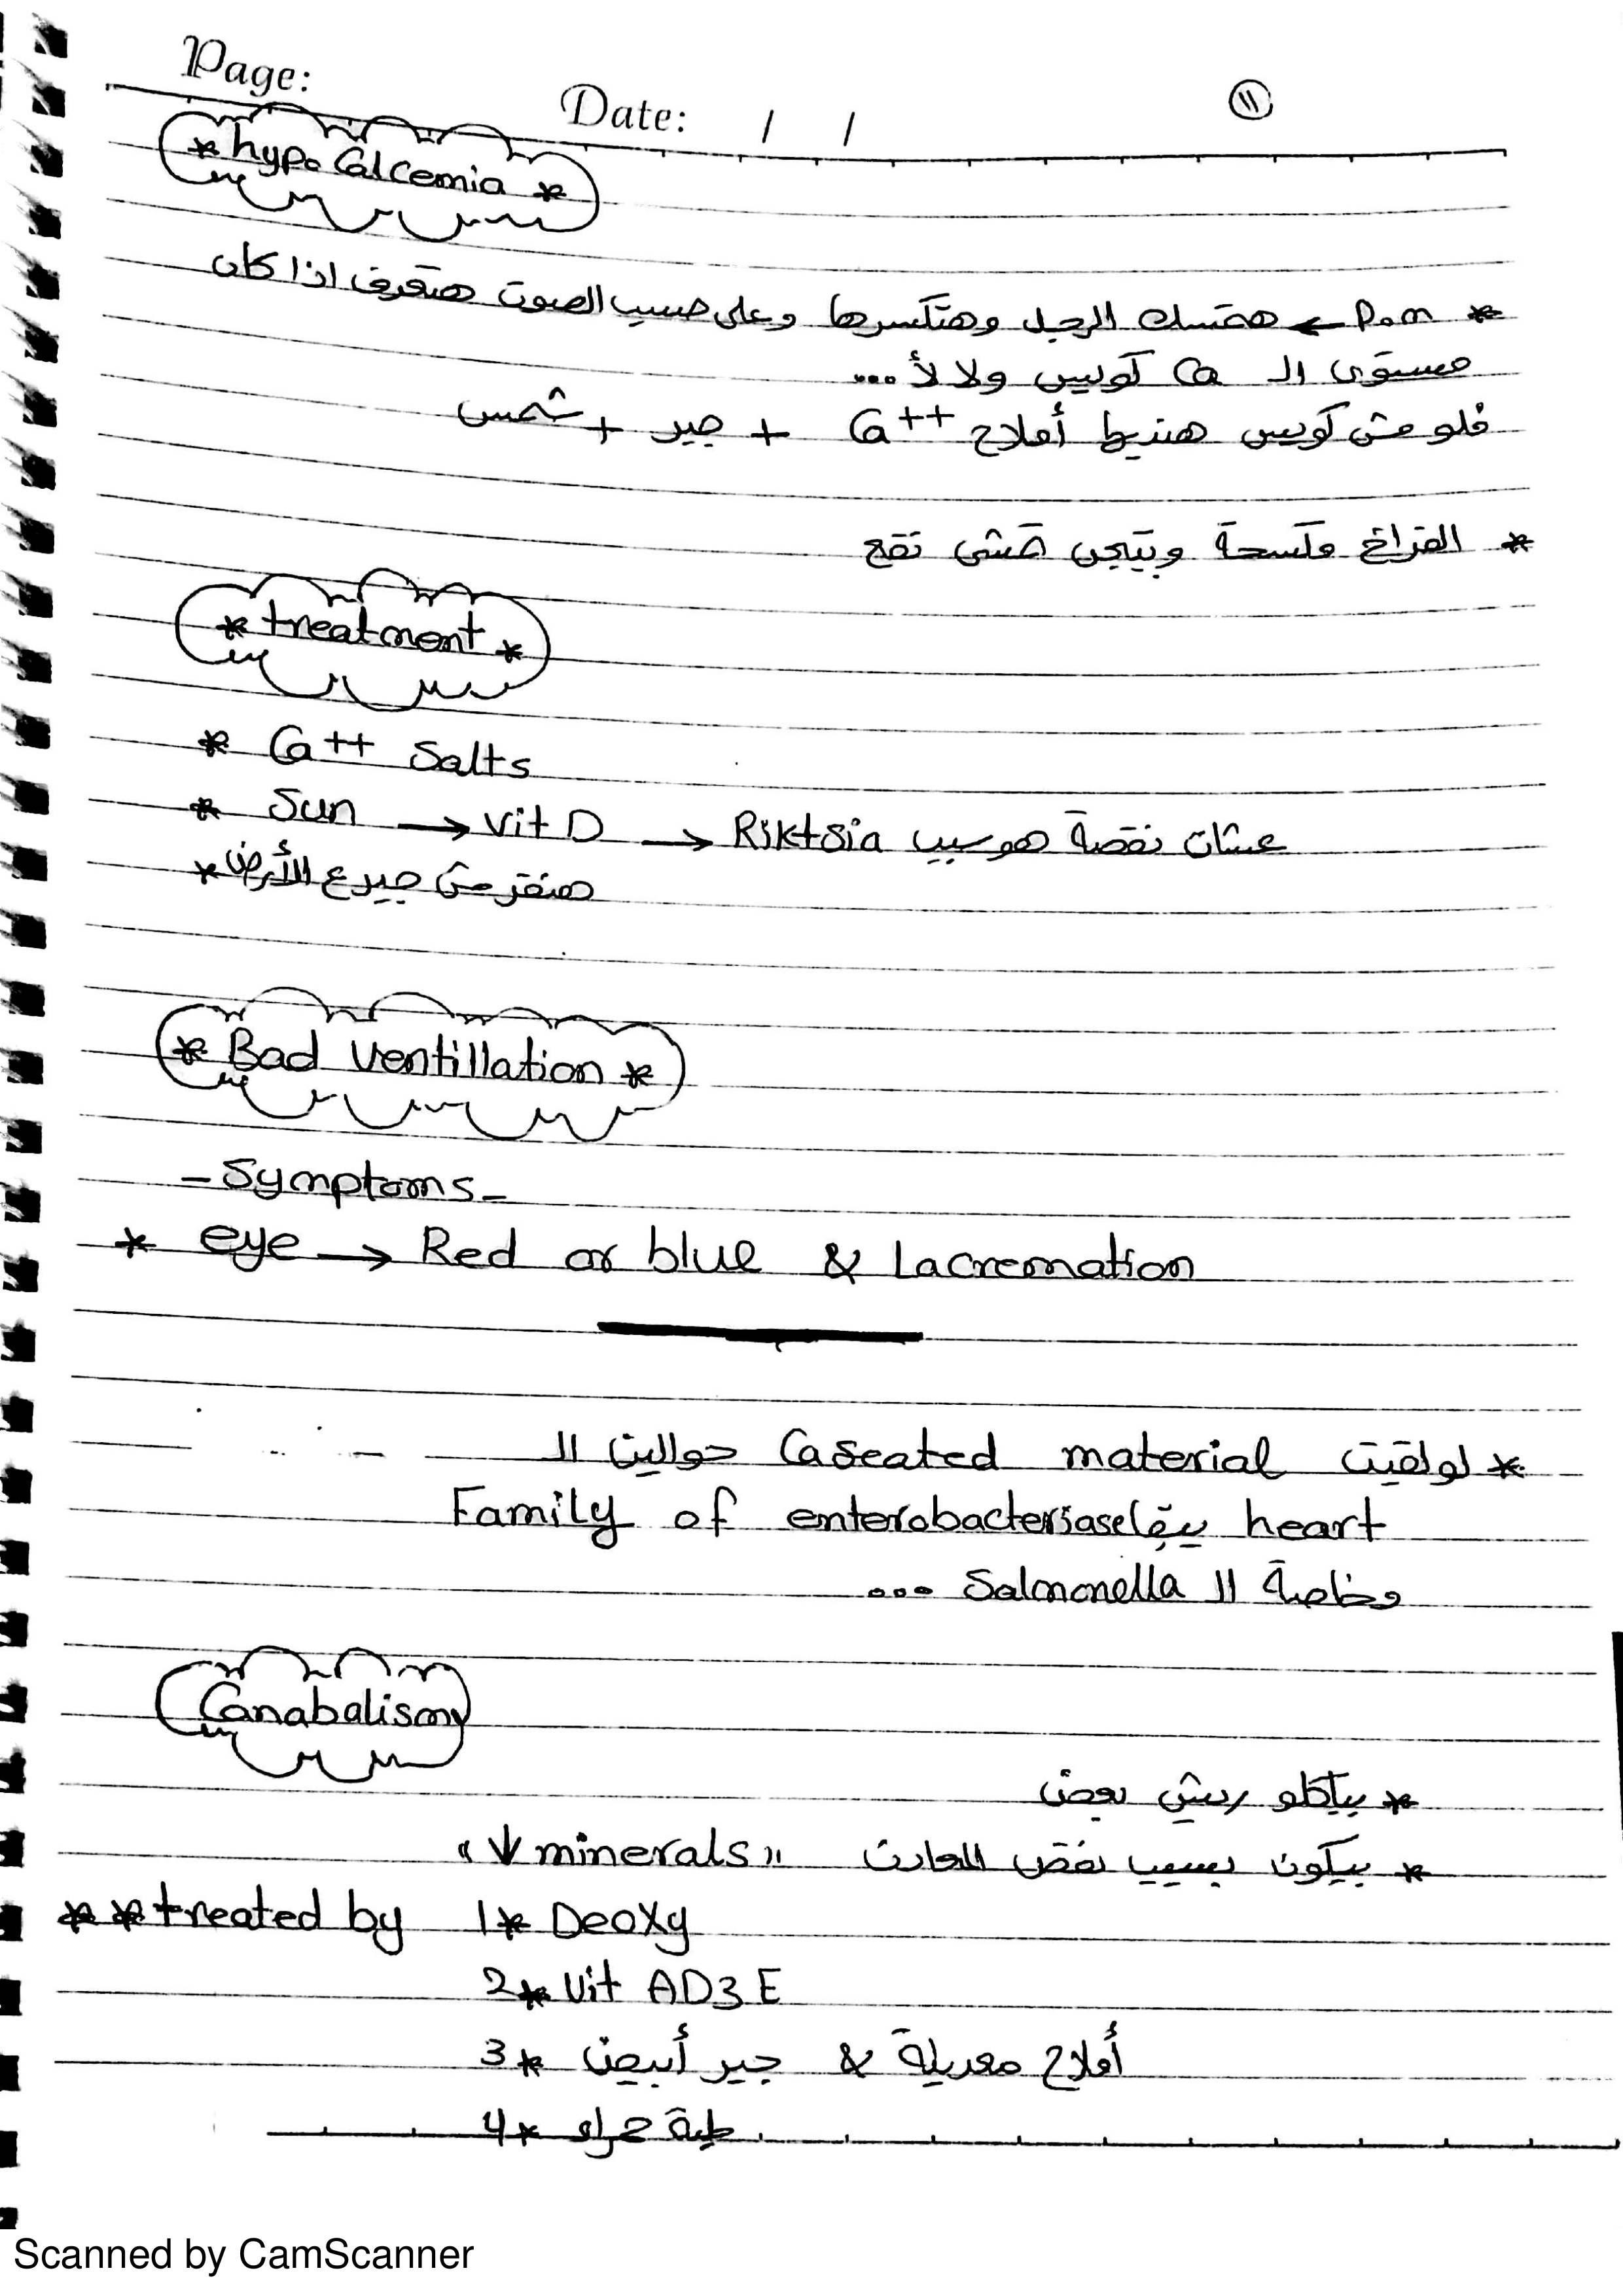 Page:
Date: / /
11
* hypoCalcemia *
* P.m ← همتسك الرجل وهتكسرها وعلى حسب الصوت هتعرف اذا كان
مستوى الـ Ca كويس ولا لأ ...
فلو مش كويس هنديها أملاح Ca++ + جير + شمس
* الفراخ مكسحة وبتيجى تمشى تقع
* treatment *
* Ca++ Salts
* Sun → Vit D → Riktsia عشان نقصة هو سبب
* هنفرش جير ع الأرض
* Bad Ventillation *
- Symptoms -
* eye → Red or blue & Lacremation
* لو لقيت Caseated material حوالين الـ
heart يبقا Family of enterobacteriase
وخاصة الـ Salmonella ...
Canabalism
* بياكلو ريش بعض
* بيكون بسبب نقص المعادن "↓ minerals"
** treated by 1* Deoxy
2* Vit AD3E
3* جير أبيض & أملاح معدنية
4* حمراء
Scanned by CamScanner